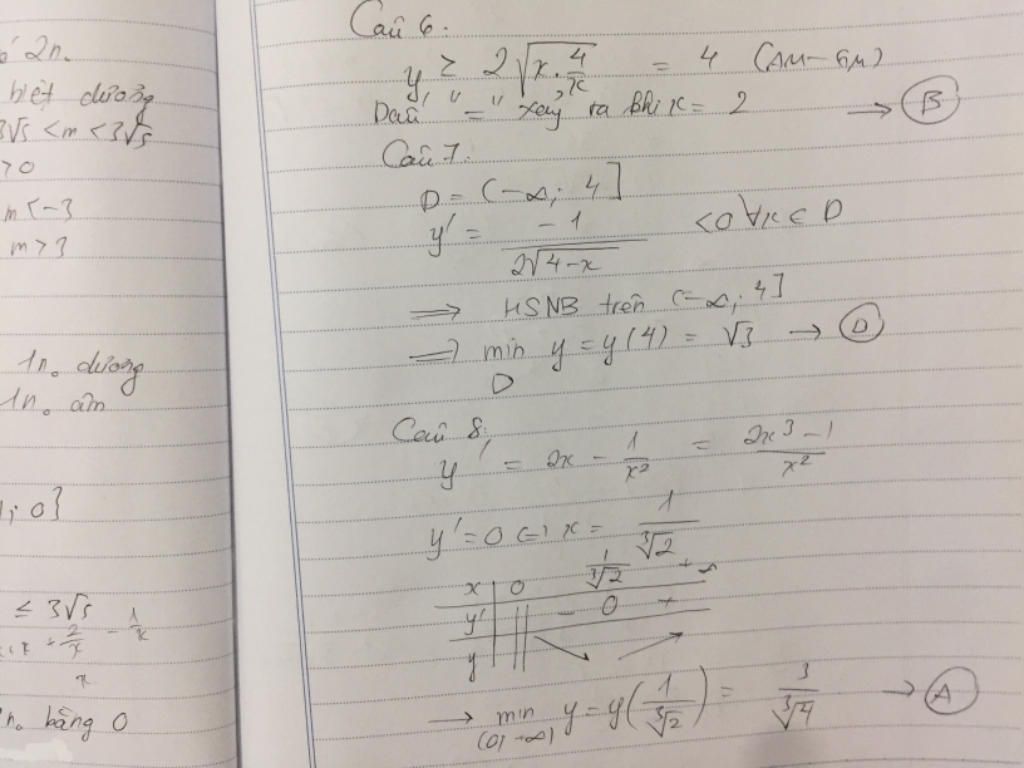 2n.
biệt dương
3√5 < m < 3√5
> 0
m < -3
m > 3
1n. dương
1n. âm
; 0}
≤ 3√5
+ 2/x - 1/x
x
n. bằng 0
Câu 6.
y ≥ 2√(x . 4/x) = 4 (AM-GM)
Dấu "=" xảy ra khi x = 2 → (B)
Câu 7.
D = (-∞; 4]
y' = -1/(2√(4-x)) < 0 ∀x ∈ D
⇒ HSNB trên (-∞; 4]
⇒ min y = y(4) = √3 → (D)
D
Câu 8.
y' = 2x - 1/x² = (2x³ - 1)/x²
y' = 0 ⇔ x = 1/∛2
x | 0 1/∛2 +∞
y' || - 0 +
y || ↘ ↗
→ min y = y(1/∛2) = 3/∛4 → (A)
(0; +∞)